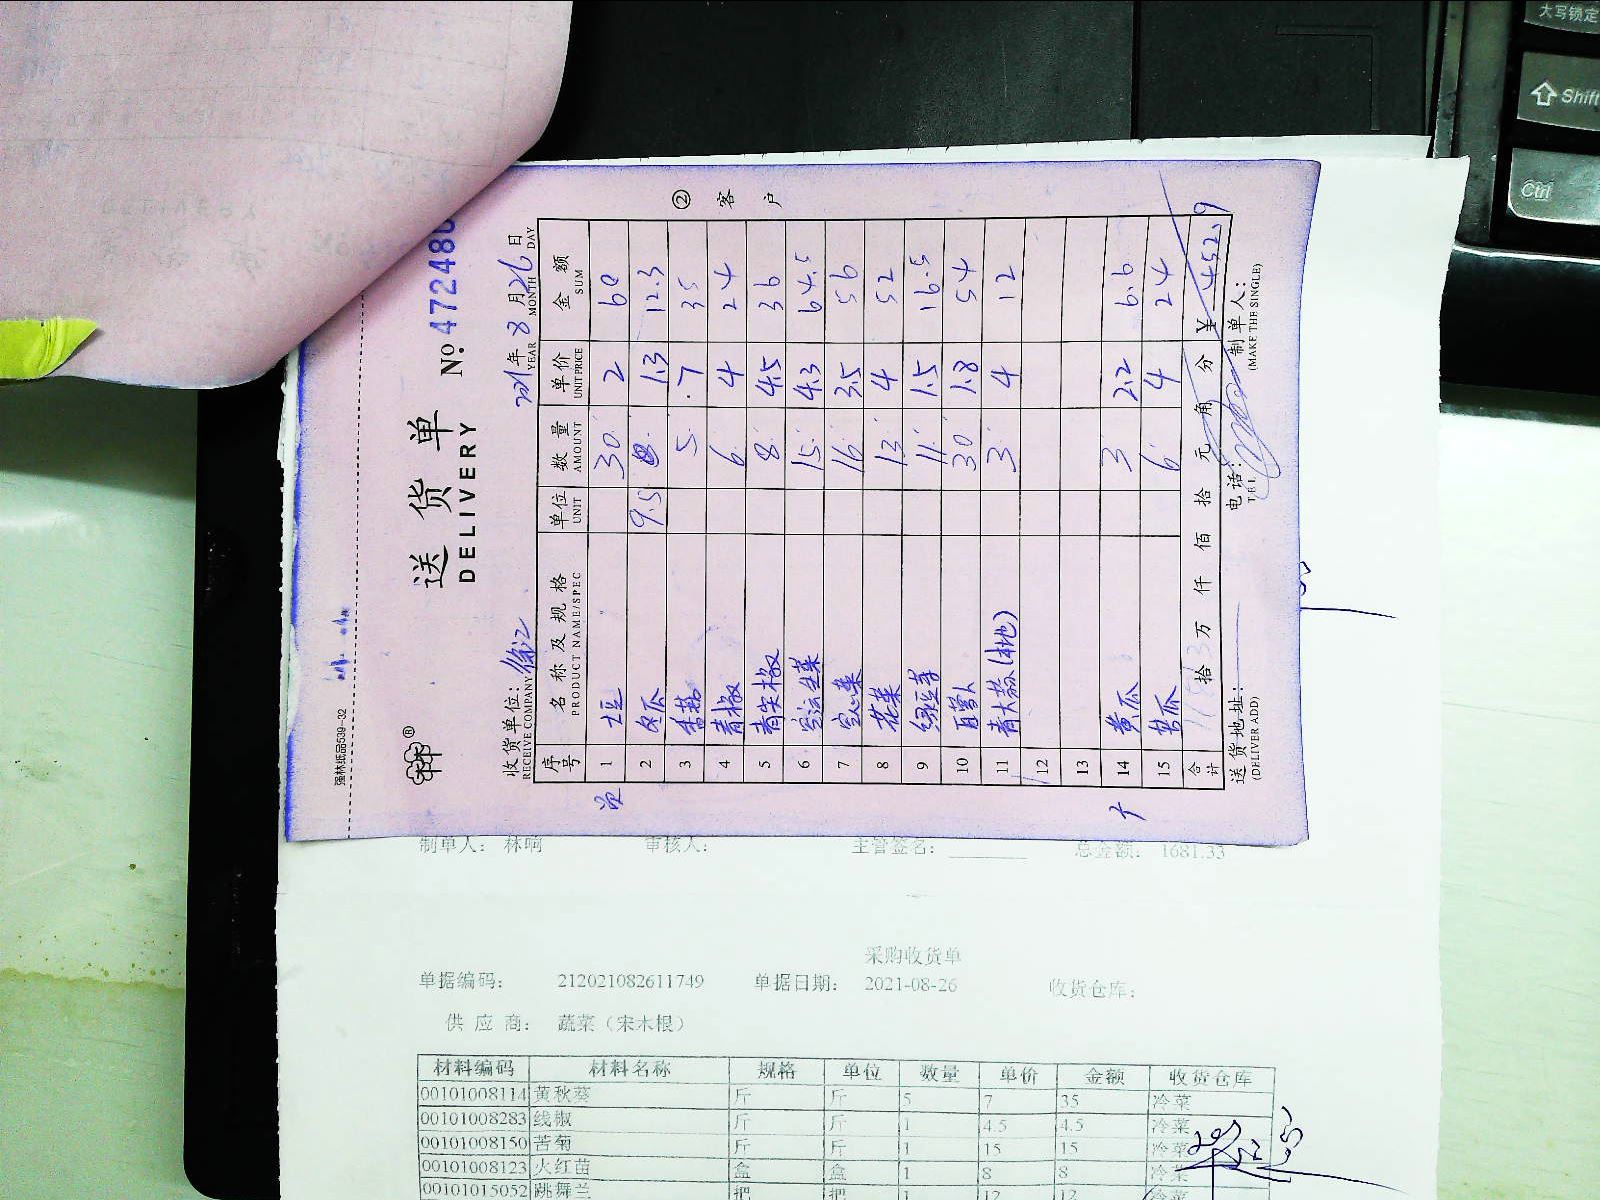 大写锁定
Shift
Ctrl
强林纸品539-32
送货单
DELIVERY
№ 4724480
收货单位: 徐汇
RECEIVE COMPANY
2021年8月26日
YEAR MONTH DAY
②客户
序号 名称及规格 单位 数量 单价 金额
PRODUCT NAME/SPEC UNIT AMOUNT UNIT PRICE SUM
1 土豆 30 2 60
2 冬瓜 9.5 1.3 12.3
3 香菇 5 7 35
4 青椒 6 4 24
5 青尖椒 8 4.5 36
6 15 4.3 64.5
7 空心菜 16 3.5 56
8 花菜 13 4 52
9 绿豆芽 11 1.5 16.5
10 白萝卜 30 1.8 54
11 青大蒜(本地) 3 4 12
12
13
14 黄瓜 3 2.2 6.6
15 苦瓜 6 4 24
合计 拾 万 仟 佰 拾 元 角 分 ¥ 452.9
送货地址: 电话: 制单人:
(DELIVER ADD) TEL (MAKE THE SINGLE)
制单人: 林响 审核人: 主管签名: 总金额: 1681.33
采购收货单
单据编码: 212021082611749 单据日期: 2021-08-26 收货仓库:
供应商: 蔬菜（宋木根）
材料编码 材料名称 规格 单位 数量 单价 金额 收货仓库
00101008114 黄秋葵 斤 斤 5 7 35 冷菜
00101008283 线椒 斤 斤 1 4.5 4.5 冷菜
00101008150 苦菊 斤 斤 1 15 15 冷菜
00101008123 火红苗 盒 盒 1 8 8 冷菜
00101015052 跳舞兰 把 把 1 12 12 冷菜